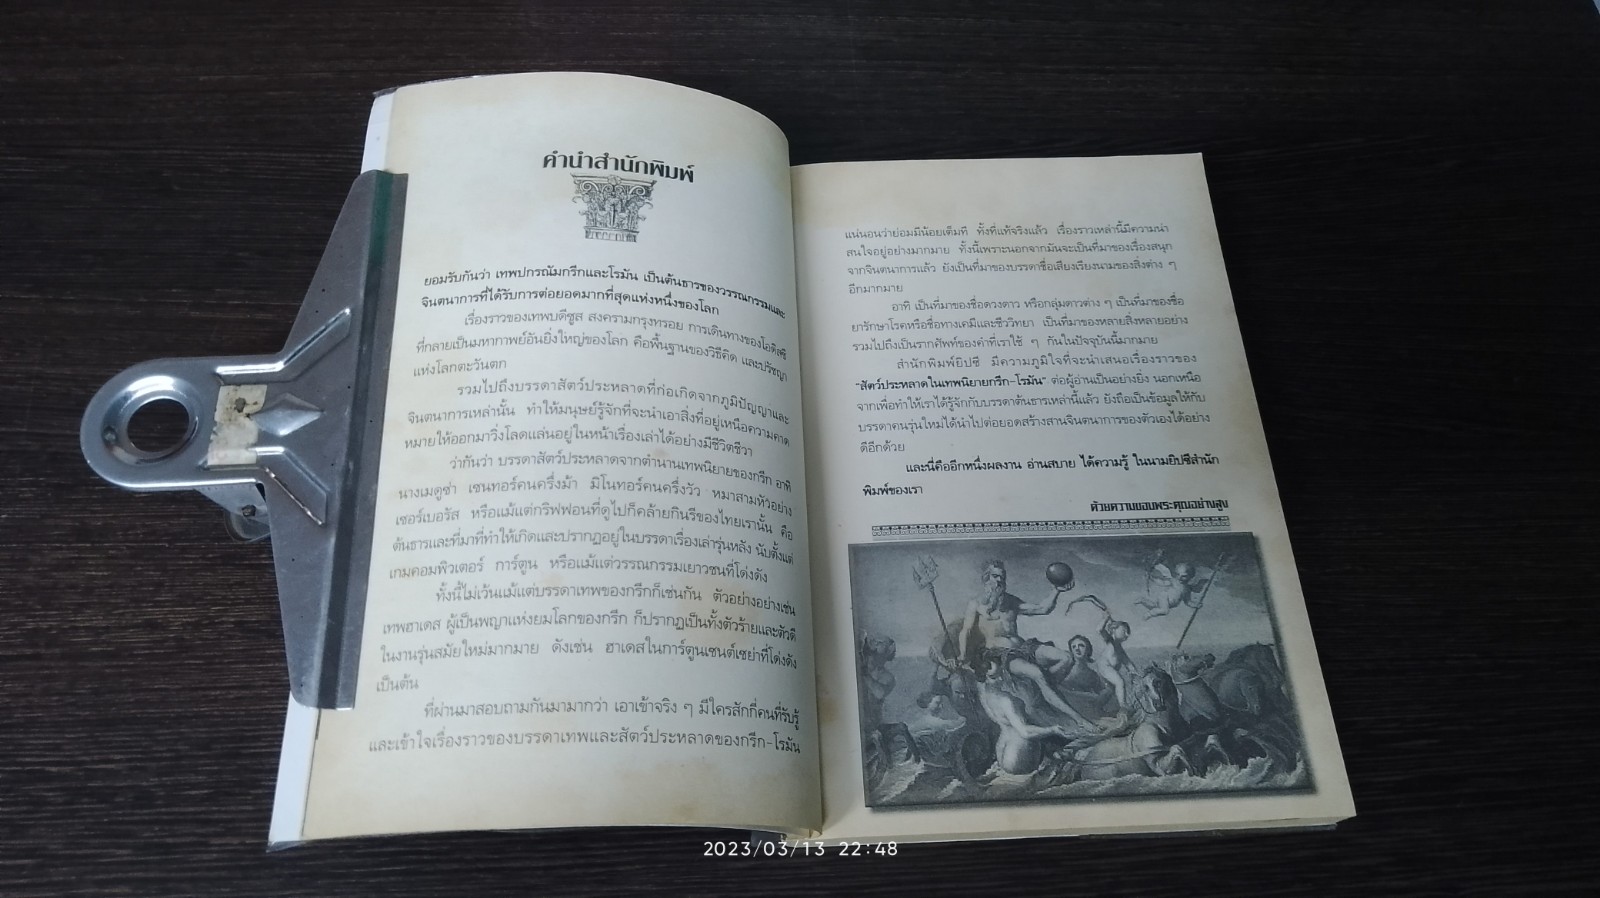 คำนำสำนักพิมพ์
ยอมรับกันว่า เทพปกรณัมกรีกและโรมัน เป็นต้นธารของวรรณกรรมและ
จินตนาการที่ได้รับการต่อยอดมากที่สุดแห่งหนึ่งของโลก
เรื่องราวของเทพบดีซูส สงครามกรุงทรอย การเดินทางของโอดิสซี
ที่กลายเป็นมหากาพย์อันยิ่งใหญ่ของโลก คือพื้นฐานของวิธีคิด และปรัชญา
แห่งโลกตะวันตก
รวมไปถึงบรรดาสัตว์ประหลาดที่ก่อเกิดจากภูมิปัญญาและ
จินตนาการเหล่านั้น ทำให้มนุษย์รู้จักที่จะนำเอาสิ่งที่อยู่เหนือความคาด
หมายให้ออกมาวิ่งโลดแล่นอยู่ในหน้าเรื่องเล่าได้อย่างมีชีวิตชีวา
ว่ากันว่า บรรดาสัตว์ประหลาดจากตำนานเทพนิยายของกรีก อาทิ
นางเมดูซ่า เซนทอร์คนครึ่งม้า มิโนทอร์คนครึ่งวัว หมาสามหัวอย่าง
เซอร์เบอรัส หรือแม้แต่กริฟฟอนที่ดูไปก็คล้ายกินรีของไทยเรานั้น คือ
ต้นธารและที่มาที่ทำให้เกิดและปรากฏอยู่ในบรรดาเรื่องเล่ารุ่นหลัง นับตั้งแต่
เกมคอมพิวเตอร์ การ์ตูน หรือแม้แต่วรรณกรรมเยาวชนที่โด่งดัง
ทั้งนี้ไม่เว้นแม้แต่บรรดาเทพของกรีกก็เช่นกัน ตัวอย่างอย่างเช่น
เทพฮาเดส ผู้เป็นพญาแห่งยมโลกของกรีก ก็ปรากฏเป็นทั้งตัวร้ายและตัวดี
ในงานรุ่นสมัยใหม่มากมาย ดังเช่น ฮาเดสในการ์ตูนเซนต์เซย่าที่โด่งดัง
เป็นต้น
ที่ผ่านมาสอบถามกันมามากว่า เอาเข้าจริง ๆ มีใครสักกี่คนที่รับรู้
และเข้าใจเรื่องราวของบรรดาเทพและสัตว์ประหลาดของกรีก-โรมัน
แน่นอนว่าย่อมมีน้อยเต็มที ทั้งที่แท้จริงแล้ว เรื่องราวเหล่านี้มีความน่า
สนใจอยู่อย่างมากมาย ทั้งนี้เพราะนอกจากมันจะเป็นที่มาของเรื่องสนุก
จากจินตนาการแล้ว ยังเป็นที่มาของบรรดาชื่อเสียงเรียงนามของสิ่งต่าง ๆ
อีกมากมาย
อาทิ เป็นที่มาของชื่อดวงดาว หรือกลุ่มดาวต่าง ๆ เป็นที่มาของชื่อ
ยารักษาโรคหรือชื่อทางเคมีและชีววิทยา เป็นที่มาของหลายสิ่งหลายอย่าง
รวมไปถึงเป็นรากศัพท์ของคำที่เราใช้ ๆ กันในปัจจุบันนี้มากมาย
สำนักพิมพ์ยิปซี มีความภูมิใจที่จะนำเสนอเรื่องราวของ
"สัตว์ประหลาดในเทพนิยายกรีก-โรมัน" ต่อผู้อ่านเป็นอย่างยิ่ง นอกเหนือ
จากเพื่อทำให้เราได้รู้จักกับบรรดาต้นธารเหล่านี้แล้ว ยังถือเป็นข้อมูลให้กับ
บรรดาคนรุ่นใหม่ได้นำไปต่อยอดสร้างสานจินตนาการของตัวเองได้อย่าง
ดีอีกด้วย
และนี่คืออีกหนึ่งผลงาน อ่านสบาย ได้ความรู้ ในนามยิปซีสำนัก
พิมพ์ของเรา
ด้วยความขอบพระคุณอย่างสูง
2023/03/13 22:48